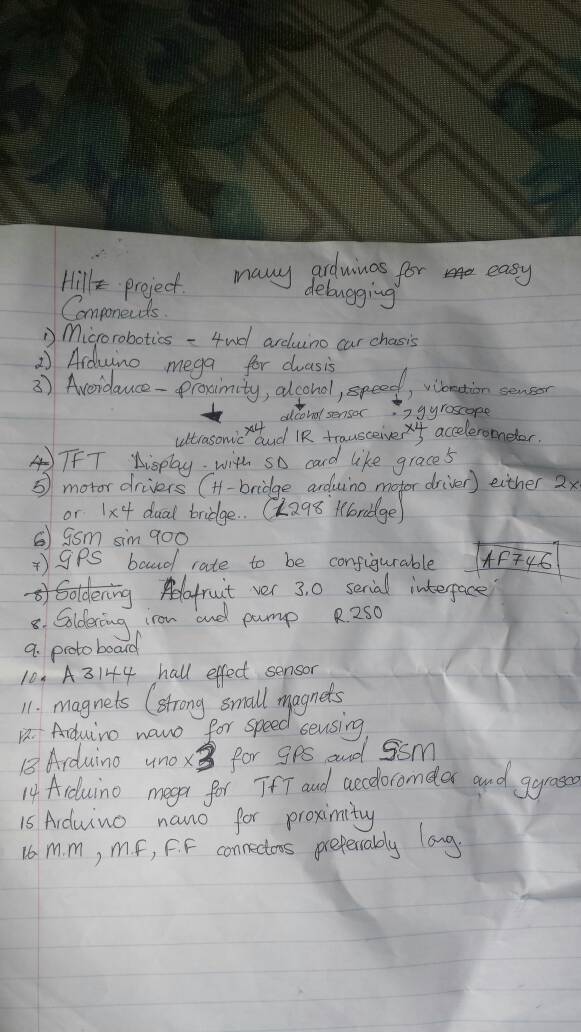 many arduinos for easy
Hillz project. debugging
Components.
1) Microrobotics - 4wd arduino car chasis
2) Arduino mega for chasis
3) Avoidance - proximity, alcohol, speed, vibration sensor
alcohol sensor gyroscope
ultrasonic x4 and IR transceiver x4, accelerometer.
4) TFT Display - with SD card like grace's
5) motor drivers (H-bridge arduino motor driver) either 2x
or 1x4 dual bridge.. (L298 Hbridge)
6) GSM sim 900
7) GPS baud rate to be configurable AF746
8) Soldering Adafruit ver 3.0 serial interface
8. Soldering iron and pump R.250
9. protoboard
10. A3144 hall effect sensor
11. magnets (strong small magnets
12. Arduino nano for speed sensing
13 Arduino uno x3 for GPS and GSM
14 Arduino mega for TFT and accelorometer and gyrasco
15 Arduino nano for proximity
16 M.M, M.F, F.F connectors preferrably long.